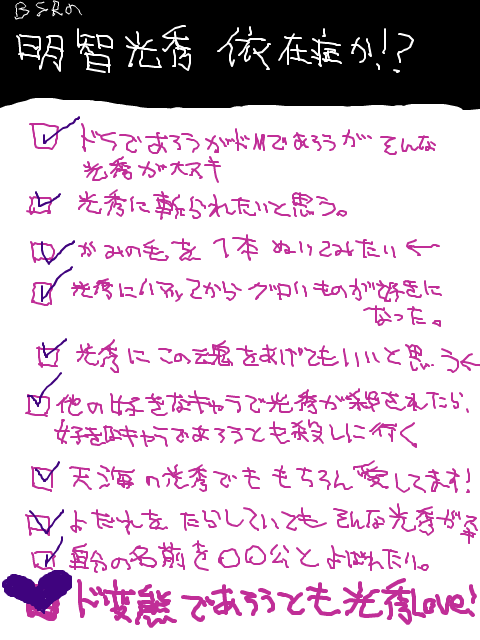 BSRの
明智光秀 依存症か!?
ドSであろうがドMであろうが そんな
光秀が大スキ
光秀に斬られたいと思う。
かみの毛を 1本 ぬいてみたい ←
光秀にハマッてから グロいものが好きに
なった。
光秀に この魂をあげてもいいと思う←
他の好きなキャラで光秀が殺されたら、
好きなキャラであろうとも殺しに行く。
天海の光秀でも もちろん 愛してます!
よだれを たらしていても そんな光秀が好き
自分の名前を〇〇公と よばれたい。
ド変態であろうとも光秀Love!